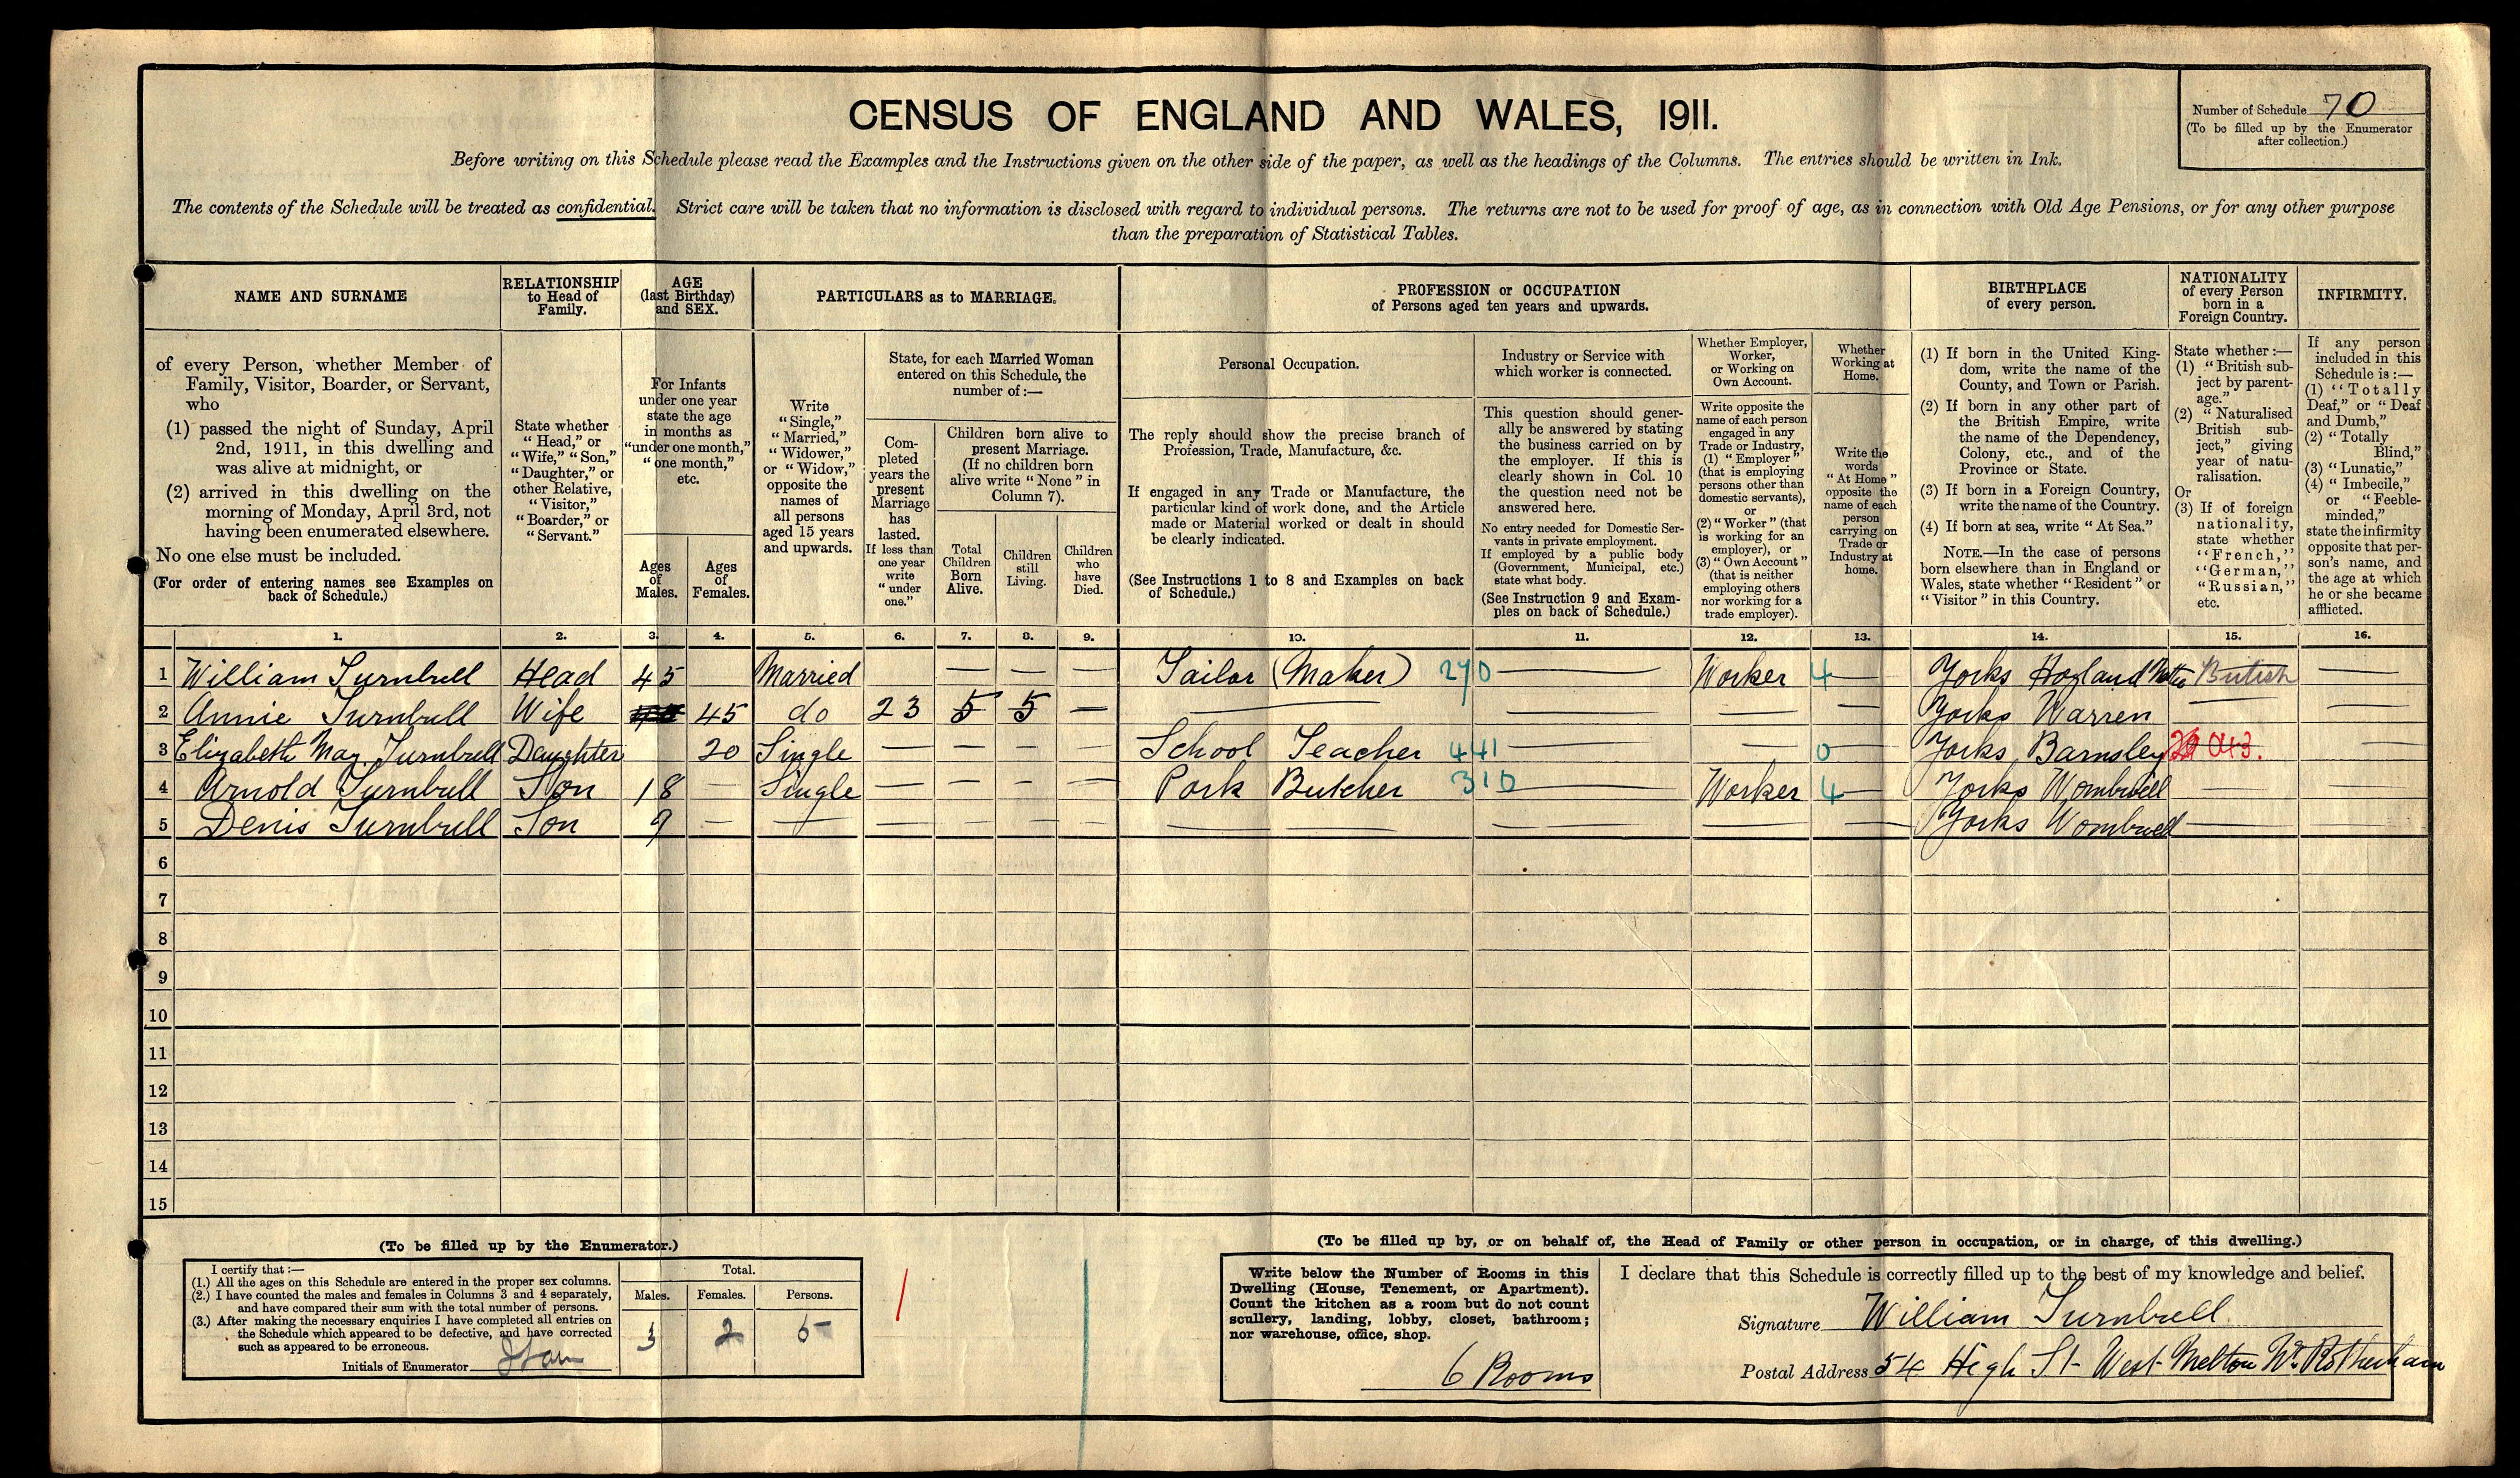 CENSUS OF ENGLAND AND WALES, 1911.
Number of Schedule 70
(To be filled up by the Enumerator
after collection.)
Before writing on this Schedule please read the Examples and the Instructions given on the other side of the paper, as well as the headings of the Columns. The entries should be written in Ink.
The contents of the Schedule will be treated as confidential. Strict care will be taken that no information is disclosed with regard to individual persons. The returns are not to be used for proof of age, as in connection with Old Age Pensions, or for any other purpose
than the preparation of Statistical Tables.
NAME AND SURNAME
of every Person, whether Member of
Family, Visitor, Boarder, or Servant,
who
(1) passed the night of Sunday, April
2nd, 1911, in this dwelling and
was alive at midnight, or
(2) arrived in this dwelling on the
morning of Monday, April 3rd, not
having been enumerated elsewhere.
No one else must be included.
(For order of entering names see Examples on
back of Schedule.)
RELATIONSHIP
to Head of
Family.
State whether
"Head," or
"Wife," "Son,"
"Daughter," or
other Relative,
"Visitor,"
"Boarder," or
"Servant."
AGE
(last Birthday)
and SEX.
For Infants
under one year
state the age
in months as
"under one month,"
"one month,"
etc.
Ages
of
Males.
Ages
of
Females.
PARTICULARS as to MARRIAGE.
Write
"Single,"
"Married,"
"Widower,"
or "Widow,"
opposite the
names of
all persons
aged 15 years
and upwards.
State, for each Married Woman
entered on this Schedule, the
number of:—
Com-
pleted
years the
present
Marriage
has
lasted.
If less than
one year
write
"under
one."
Children born alive to
present Marriage.
(If no children born
alive write "None" in
Column 7).
Total
Children
Born
Alive.
Children
still
Living.
Children
who
have
Died.
PROFESSION or OCCUPATION
of Persons aged ten years and upwards.
Personal Occupation.
The reply should show the precise branch of
Profession, Trade, Manufacture, &c.
If engaged in any Trade or Manufacture, the
particular kind of work done, and the Article
made or Material worked or dealt in should
be clearly indicated.
(See Instructions 1 to 8 and Examples on back
of Schedule.)
Industry or Service with
which worker is connected.
This question should gener-
ally be answered by stating
the business carried on by
the employer. If this is
clearly shown in Col. 10
the question need not be
answered here.
No entry needed for Domestic Ser-
vants in private employment.
If employed by a public body
(Government, Municipal, etc.)
state what body.
(See Instruction 9 and Exam-
ples on back of Schedule.)
Whether Employer,
Worker,
or Working on
Own Account.
Write opposite the
name of each person
engaged in any
Trade or Industry,
(1) "Employer"
(that is employing
persons other than
domestic servants),
or
(2) "Worker" (that
is working for an
employer), or
(3) "Own Account"
(that is neither
employing others
nor working for a
trade employer).
Whether
Working at
Home.
Write the
words
"At Home"
opposite the
name of each
person
carrying on
Trade or
Industry at
home.
BIRTHPLACE
of every person.
(1) If born in the United King-
dom, write the name of the
County, and Town or Parish.
(2) If born in any other part of
the British Empire, write
the name of the Dependency,
Colony, etc., and of the
Province or State.
(3) If born in a Foreign Country,
write the name of the Country.
(4) If born at sea, write "At Sea."
NOTE.—In the case of persons
born elsewhere than in England or
Wales, state whether "Resident" or
"Visitor" in this Country.
NATIONALITY
of every Person
born in a
Foreign Country.
State whether:—
(1) "British sub-
ject by parent-
age."
(2) "Naturalised
British sub-
ject," giving
year of natu-
ralisation.
Or
(3) If of foreign
nationality,
state whether
"French,"
"German,"
"Russian,"
etc.
INFIRMITY.
If any person
included in this
Schedule is:—
(1) "Totally
Deaf," or "Deaf
and Dumb,"
(2) "Totally
Blind,"
(3) "Lunatic,"
(4) "Imbecile,"
or "Feeble-
minded,"
state the infirmity
opposite that per-
son's name, and
the age at which
he or she became
afflicted.
1. 2. 3. 4. 5. 6. 7. 8. 9. 10. 11. 12. 13. 14. 15. 16.
1 William Turnbull Head 45 Married — — — Tailor (Maker) 270 — Worker 4 — Yorks Hoyland British —
2 Annie Turnbull Wife 45 do 23 5 5 — — — — — Yorks Warren — —
3 Elizabeth May Turnbull Daughter 20 Single — — — — School Teacher 441 — — 0 Yorks Barnsley —
4 Arnold Turnbull Son 18 — Single — — — — Pork Butcher 310 — Worker 4 — Yorks Wombwell — —
5 Denis Turnbull Son 9 — — — — — — — — — — Yorks Wombwell — —
6
7
8
9
10
11
12
13
14
15
(To be filled up by the Enumerator.)
I certify that:—
(1.) All the ages on this Schedule are entered in the proper sex columns.
(2.) I have counted the males and females in Columns 3 and 4 separately,
and have compared their sum with the total number of persons.
(3.) After making the necessary enquiries I have completed all entries on
the Schedule which appeared to be defective, and have corrected
such as appeared to be erroneous.
Initials of Enumerator
Total.
Males. Females. Persons.
3 2 5
(To be filled up by, or on behalf of, the Head of Family or other person in occupation, or in charge, of this dwelling.)
Write below the Number of Rooms in this
Dwelling (House, Tenement, or Apartment).
Count the kitchen as a room but do not count
scullery, landing, lobby, closet, bathroom;
nor warehouse, office, shop.
6 Rooms
I declare that this Schedule is correctly filled up to the best of my knowledge and belief.
Signature William Turnbull
Postal Address 54 High St West Melton Nr Rotherham